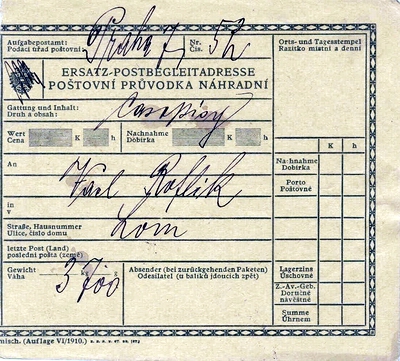 Aufgabepostamt: Praha 7
Podací úřad poštovní
Nr. 52
Čís.
Orts- und Tagesstempel
Razítko místní a denní
ERSATZ-POSTBEGLEITADRESSE
POŠTOVNÍ PRŮVODKA NÁHRADNÍ
Gattung und Inhalt: Časopisy
Druh a obsah:
Wert K h
Cena
Nachnahme K h
Dobírka
K h
An Karl
in
v
Nachnahme
Dobírka
Porto
Poštovné
Straße, Hausnummer Lom
Ulice, číslo domu
letzte Post (Land)
poslední pošta (země)
Gewicht 3 700
Váha
Absender (bei zurückgehenden Paketen)
Odesílatel (u balíků jdoucích zpět)
Lagerzins
Úschovné
Z.-Av.-Geb.
Doručné
návěštné
Summe
Úhrnem
misch. (Auflage VI/1910.)